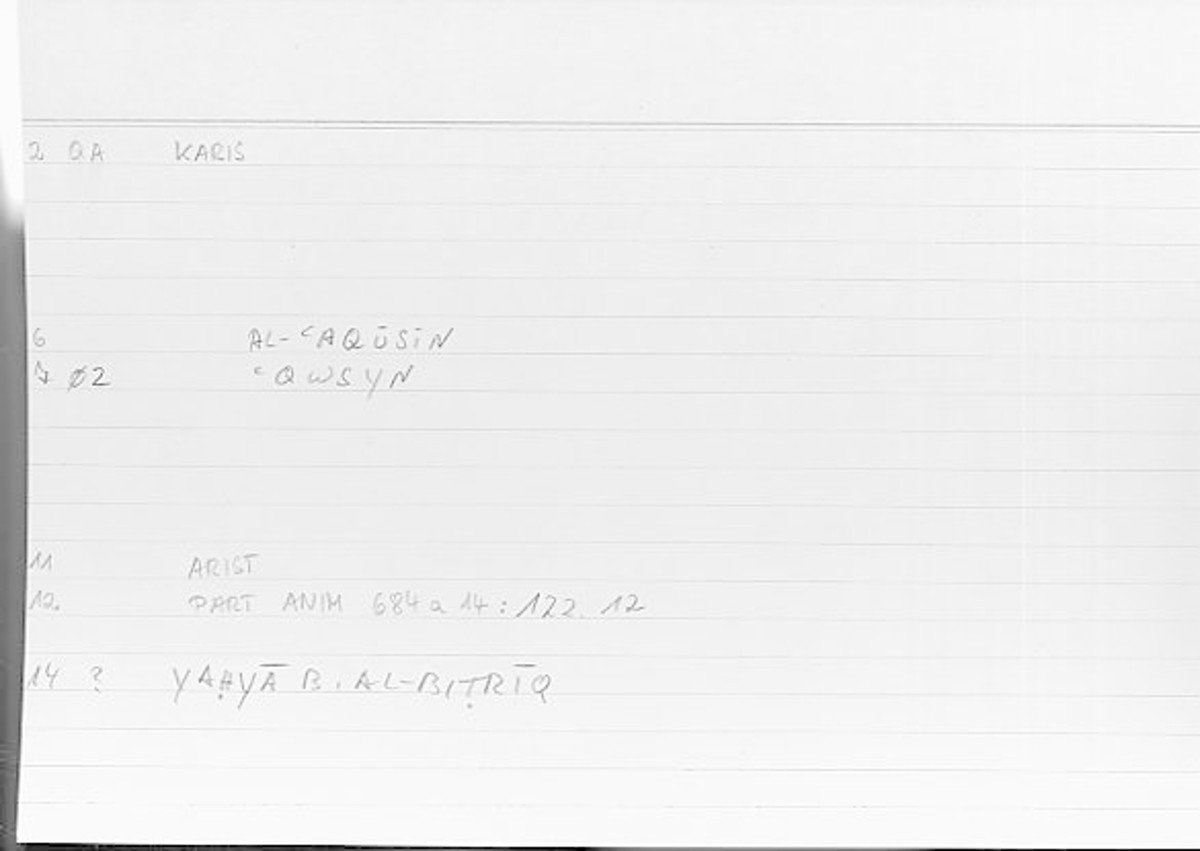 2 QA KARIS
6 AL-ʿAQŪSĪN
7 ø2 ʿQWSYN
11 ARIST
12. PART ANIM 684a 14 : 122. 12
14 ? YAḤYĀ B. AL-BIṬRĪQ